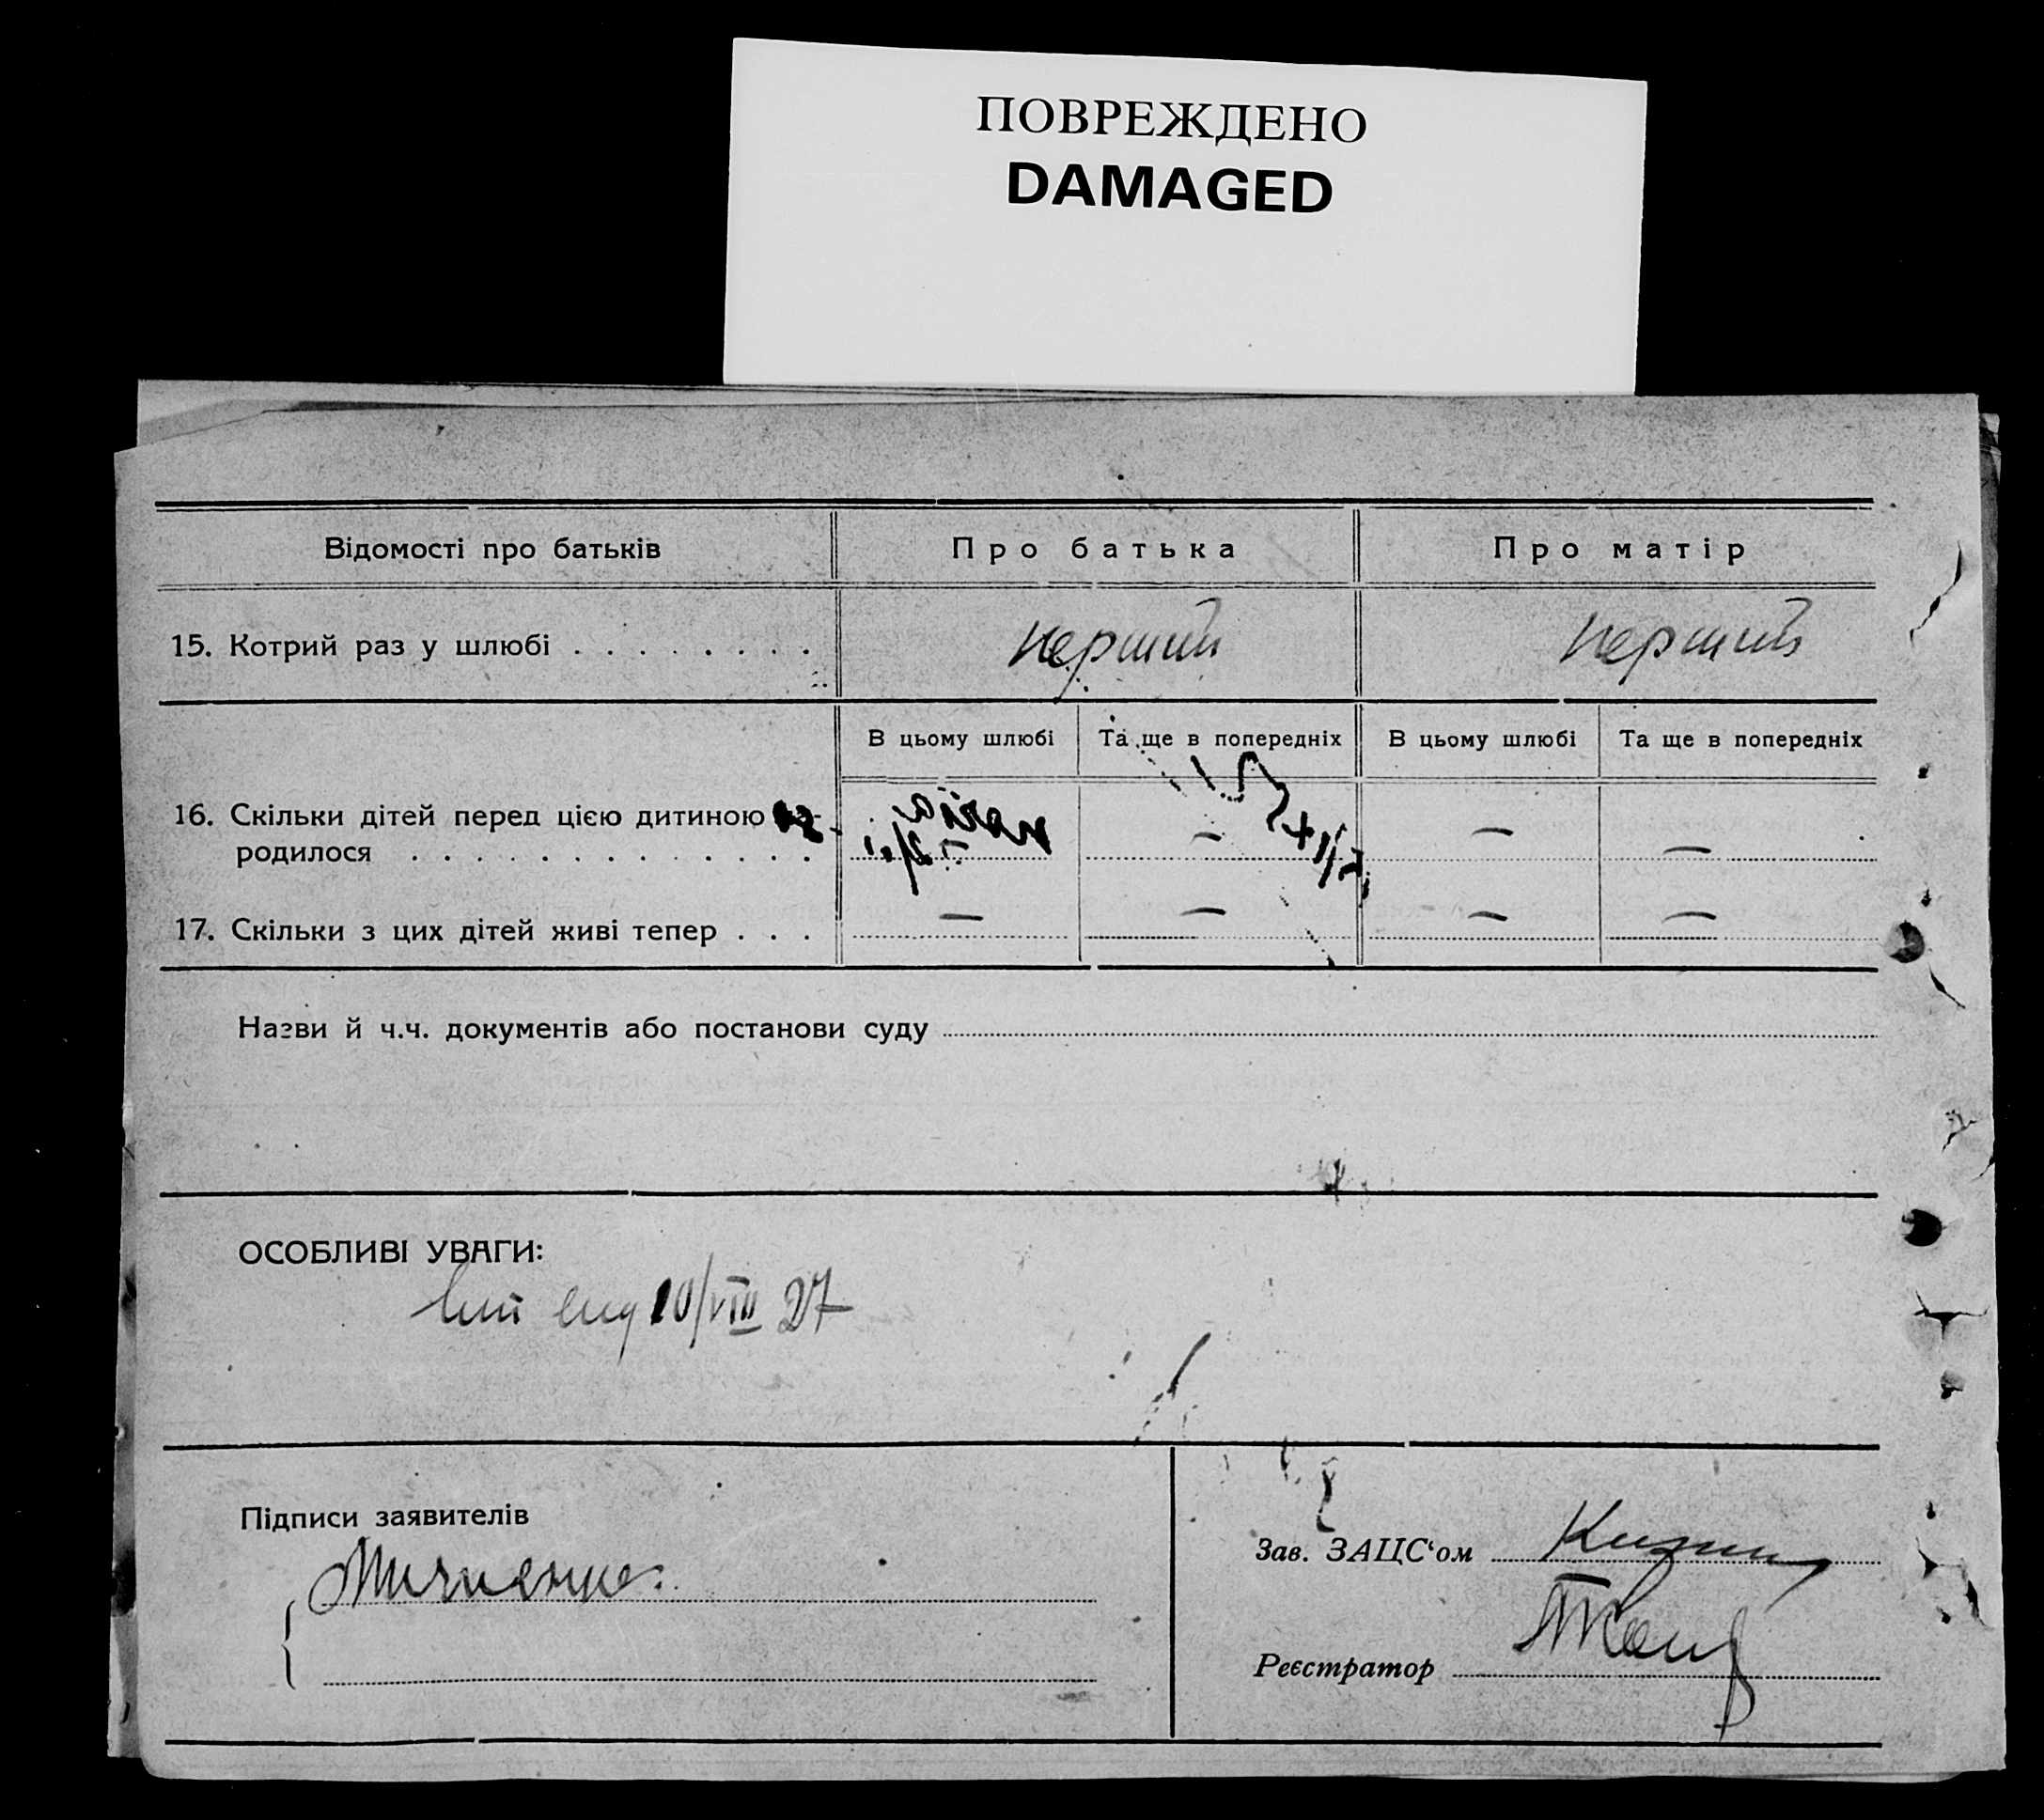 ПОВРЕЖДЕНО
DAMAGED
Відомості про батьків
Про батька
Про матір
15. Котрий раз у шлюбі . . . . . . . .
перший
перший
В цьому шлюбі
Та ще в попередніх
В цьому шлюбі
Та ще в попередніх
16. Скільки дітей перед цією дитиною
родилося . . . . . . . . . . . . .
— — —
17. Скільки з цих дітей живі тепер . . .
— — — —
Назви й ч.ч. документів або постанови суду
ОСОБЛИВІ УВАГИ:
10/VIII 27
Підписи заявителів
Зав. ЗАЦС‘ом
Реєстратор